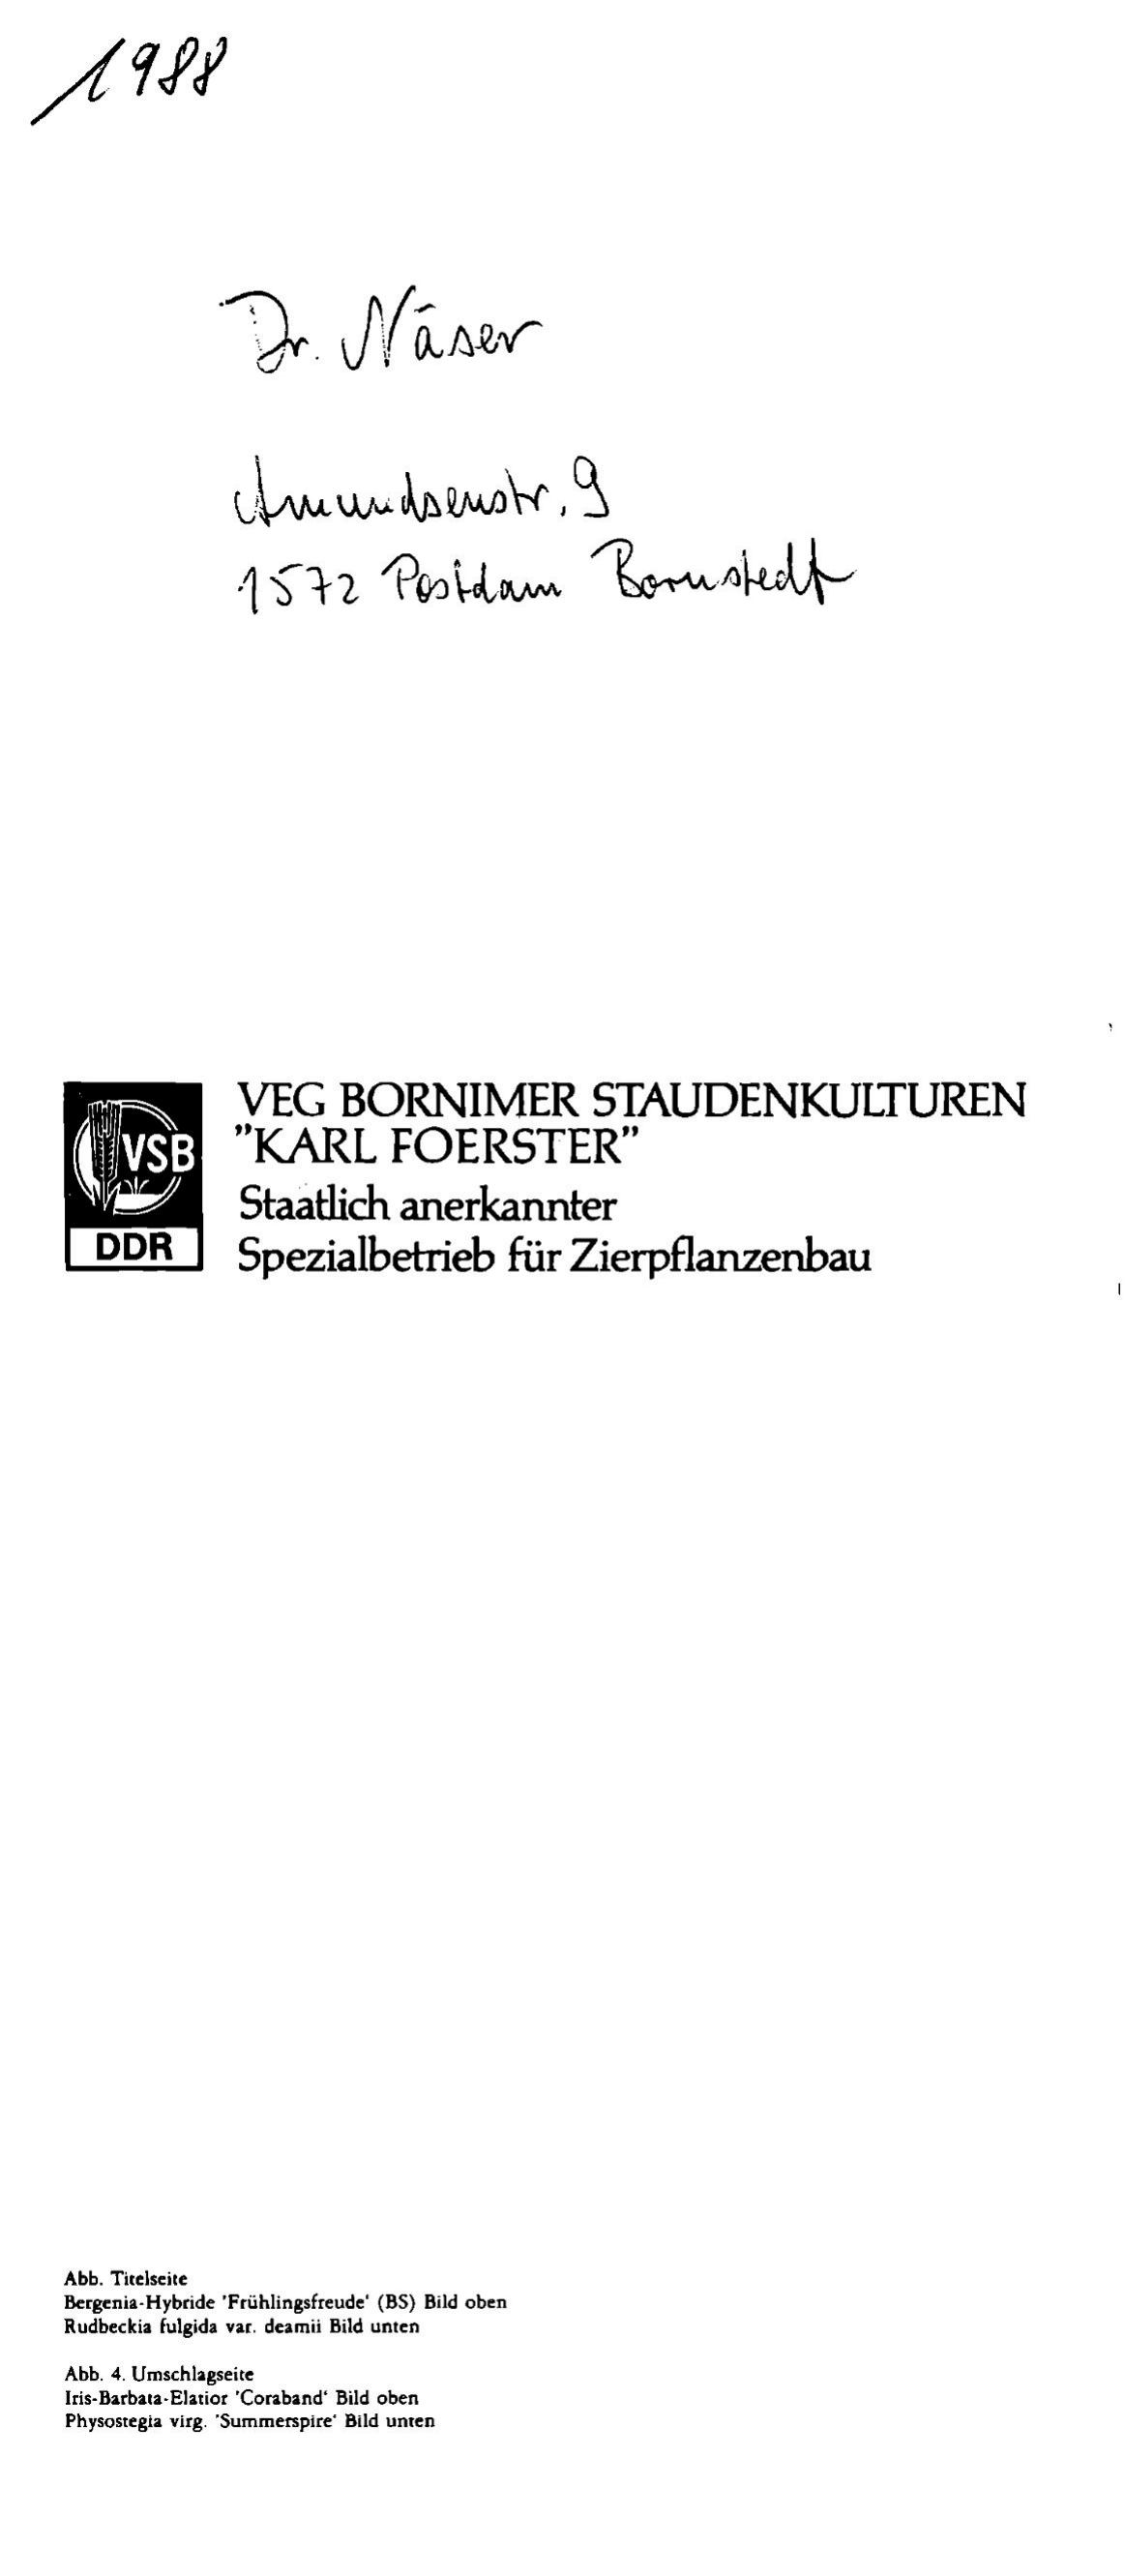 1988
Dr. Näser
Amundsenstr. 9
1572 Postdam Bornstedt
VSB
DDR
VEG BORNIMER STAUDENKULTUREN
”KARL FOERSTER”
Staatlich anerkannter
Spezialbetrieb für Zierpflanzenbau
Abb. Titelseite
Bergenia-Hybride 'Frühlingsfreude' (BS) Bild oben
Rudbeckia fulgida var. deamii Bild unten
Abb. 4. Umschlagseite
Iris-Barbata-Elatior 'Coraband' Bild oben
Physostegia virg. 'Summerspire' Bild unten